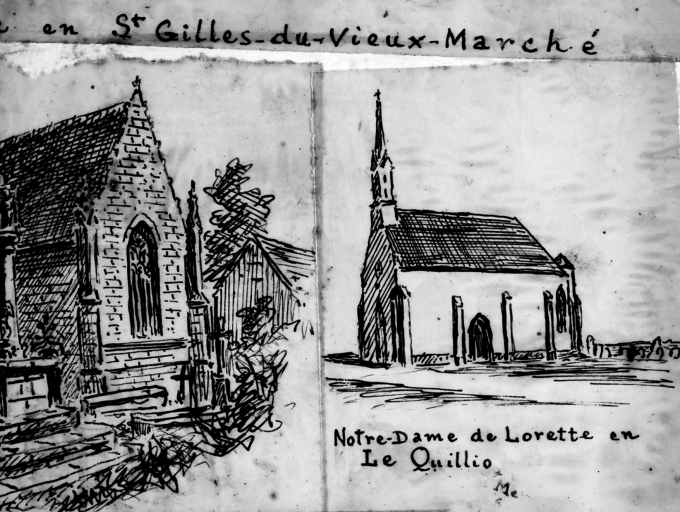 en St Gilles-du-Vieux-Marché
Notre-Dame de Lorette en
Le Quillio
Me